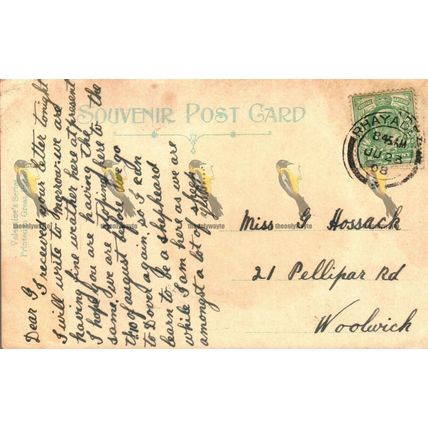 SOUVENIR POST CARD
Valentine's Series
Printed in Great
Dear G,
I received your letter tonight
I will write to-morrow. we are
having fine weather here at present
I hope you are having the
same. we are stopping here to the
two of august before we go
to Dovel again; so I can
learn to be a shepheard
while I am here as we are
amongst a lot of sheep
RHAYADER
845AM
JU 23
08
Miss G Hossack
21 Pellipar Rd
Woolwich
theonlywayto
theonlywayto
theonlywayto
theonlywayto